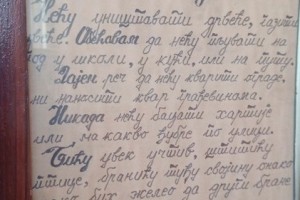 Нећу уништавати дрвеће, газити
цвеће. Обећавам да нећу пљувати на
под у школи, у кући, или на путу.
Дајем реч да нећу кварити ограде,
ни наносити квар грађевинама.
Никада нећу бацати хартије
или ма какво ђубре по улици.
Бићу увек учтив, штитићу
птице, бранићу туђу својину онако
како бих желео да други бране